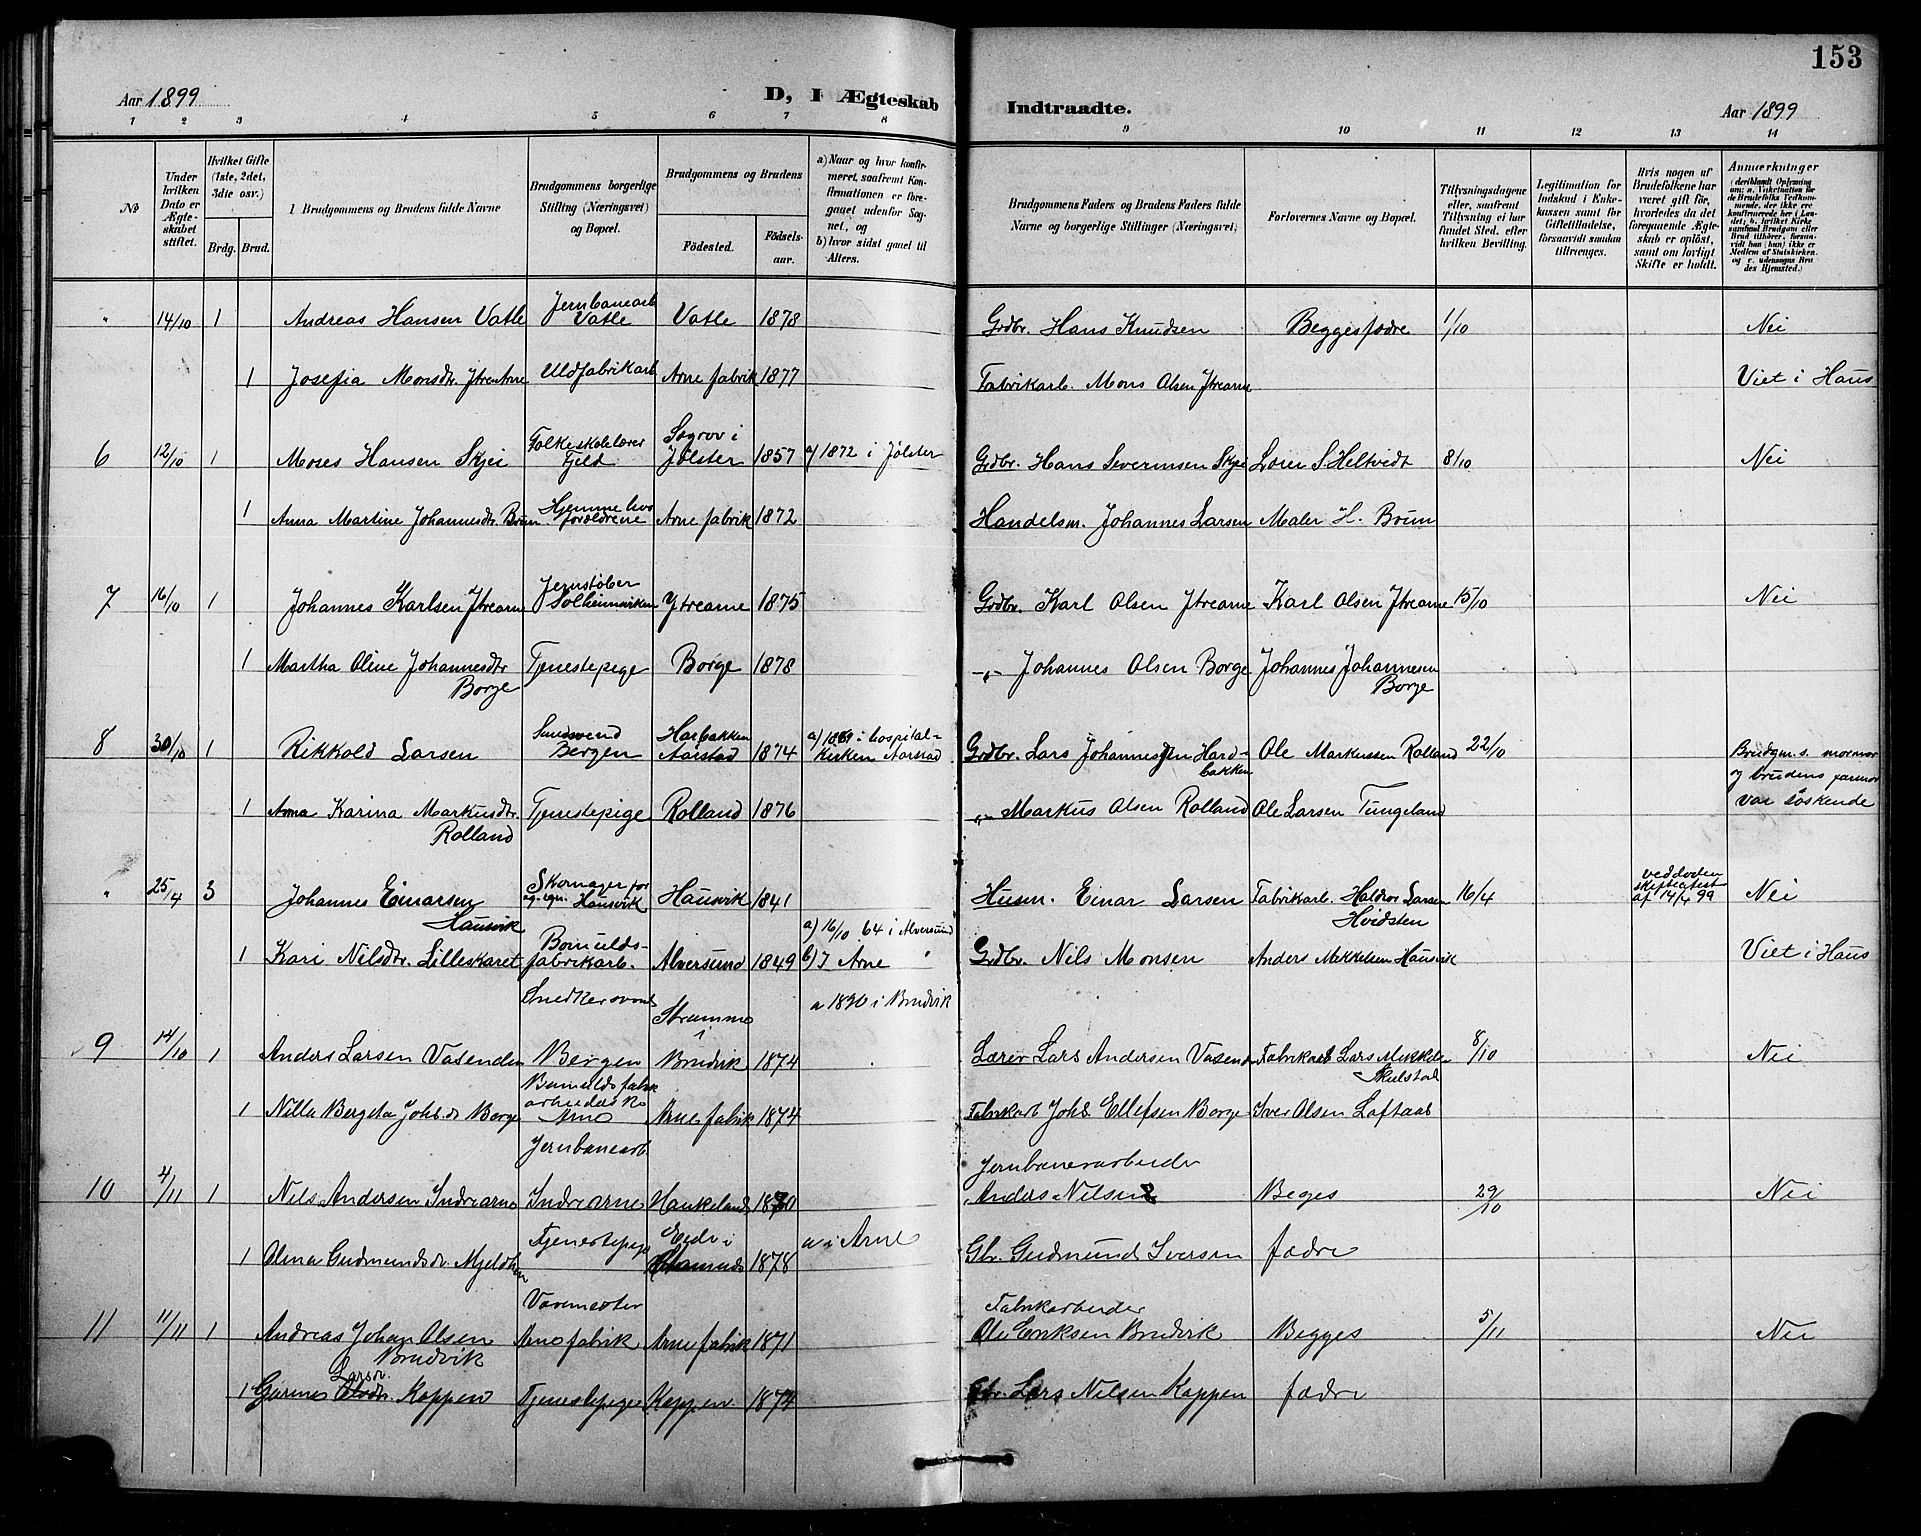 153
Aar 1899
D, I Ægteskab
Indtraadte.
Aar 1899
1 2 3 4 5 6 7 8 9 10 11 12 13 14
No
Under hvilken Dato er Ægteskabet stiftet.
Hvilket Gifte (1ste, 2det, 3die osv.)
Brdg. Brud.
1 Brudgommens og Brudens fulde Navne
Brudgommens borgerlige Stilling (Næringsvei) og Bopæl.
Brudgommens og Brudens
Fødested.
Fødsels-aar.
a) Naar og hvor konfirmeret, saafremt Konfirmationen er foregaaet udenfor Sognet, og
b) hvor sidst gaaet til Alters.
Brudgommens Faders og Brudens Faders fulde Navne og borgerlige Stillinger (Næringsvei)
Forlovernes Navne og Bopæl.
Tillysningsdagene eller, saafremt Tillysning ei har fundet Sted, efter hvilken Bevilling.
Legitimation for Indskud i Enkekassen samt for Giftetilladelse, forsaavidt saadan tiltrænges.
Hvis nogen af Brudefolkene har været gift før, hvorledes da det foregaaende Ægteskab er opløst, samt om lovligt Skifte er holdt.
Anmærkninger
" 14/10 1 Andreas Hansen Vatle Jernbanearb Vatle Vatle 1878 Grdbr. Hans Knudsen Beggesfædre 1/10 Nei
1 Josefia Monsdtr. Ytrearne Uldfabrikarb Arne fabrik 1877 Fabrikarb. Mons Olsen Ytrearne Viet i Haus
6 12/10 1 Moses Hansen Skjei Folkeskolelærer Fjeld Sogrov i Jølster 1857 a) 1872 i Jølster Grdbr. Hans Severinsen Skjei Lærer S Heltvidt 8/10 Nei
1 Anna Martine Johannesdtr. Brun Hjemme hos forældrene Arne fabrik 1872 Handelsm. Johannes Larsen Maler H. Brun
7 16/10 1 Johannes Karlsen Ytrearne Jernstøber Solheimsviken Ytrearne 1875 Grdbr. Karl Olsen Ytrearne Karl Olsen Ytrearne 15/10 Nei
1 Martha Oline Johannesdtr Borge Tjenestepige Borge 1878 -"- Johannes Olsen Borge Johannes Johannesen Borge
8 30/10 1 Rikkold Larsen Smedsvend Bergen Harbakken Aarstad 1874 a) 1889 i hospital-kirken Aarstad Grdbr. Lars Johannessen Hardbakken Ole Markussen Rolland 22/10 Brudgm.s. mormor og brudens farmor var søskende
1 Anna Karina Markusdtr. Rolland Tjenestepige Rolland 1876 -"- Markus Olsen Rolland Ole Larsen Tungeland
" 25/4 3 Johannes Einarsen Hausvik Skomager for eg. regn. Hausvik Hausvik 1841 Husm. Einar Larsen Fabrikarb. Haldor Larsen Hvidsten 16/4 ved døden skifteattest af 14/4 99 Nei
1 Kari Nilsdtr. Lilleskaret Bomulds-fabrikarb. Alversund 1849 a) 16/10 64 i Alversund b) I Arne " Grdbr. Nils Monsen Anders Mikkelsen Hausvik Viet i Haus
9 14/10 1 Anders Larsen Vasenden Snedkersvend Bergen Strømme i Brudvik 1874 a 1890 i Brudvik Lærer Lars Andersen Vasend Fabrikarb Lars Mikkelsen Skulstad 8/10 Nei
1 Nilla Bergeta Johs.dr Borge Bomuldsfabrik arbeiderske Arne Arne fabrik 1874 Fabrikarb Johs Ellefsen Borge Iver Olsen Loftaas
10 4/11 1 Nils Andersen Indrearne Jernbanearb. Indrearne Haukeland 1870 Jernbanearbeider Anders Nilsen Beges 29/10 Nei
1 Olina Gudmundsdr. Mjeldheim Tjenestepige Eide i Hamnds 1878 a i Arne Gbr. Gudmund Iversen fædre
11 11/11 1 Andreas Johan Olsen Brudvik Varemester Arne fabrik Arne fabrik 1871 Fabrikarbeider Ole Eriksen Brudvik Begges 5/11 Nei
1 Larsdr. Koppen Tjenestepige Koppen 1874 Gbr. Lars Nilsen Koppen fædre